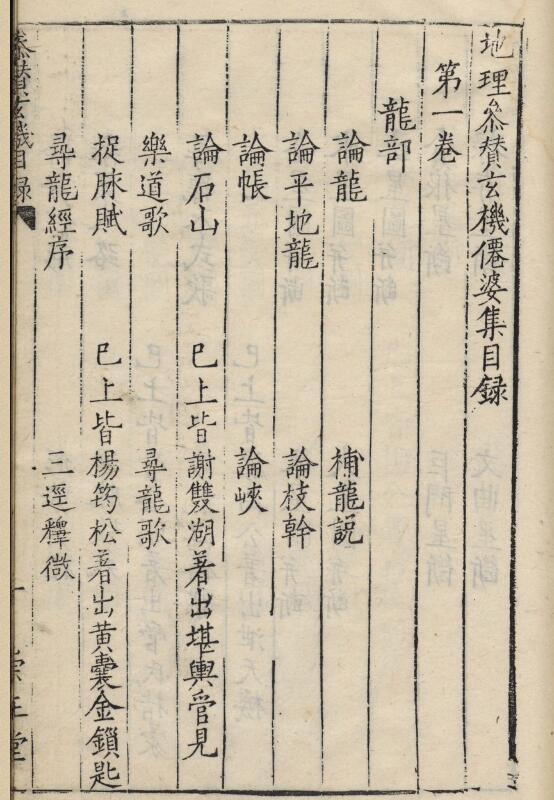 地理叅賛玄機僊婆集目録
第一卷
龍部
論龍 補龍説
論平地龍 論枝幹
論帳 論峽
論石山 巳上皆謝雙湖著出堪輿管見
樂道歌 尋龍歌
捉脉賦 巳上皆楊筠松著出黄囊金鎖匙
尋龍經序 三逕釋微
叅賛玄機目録 一 崇正堂